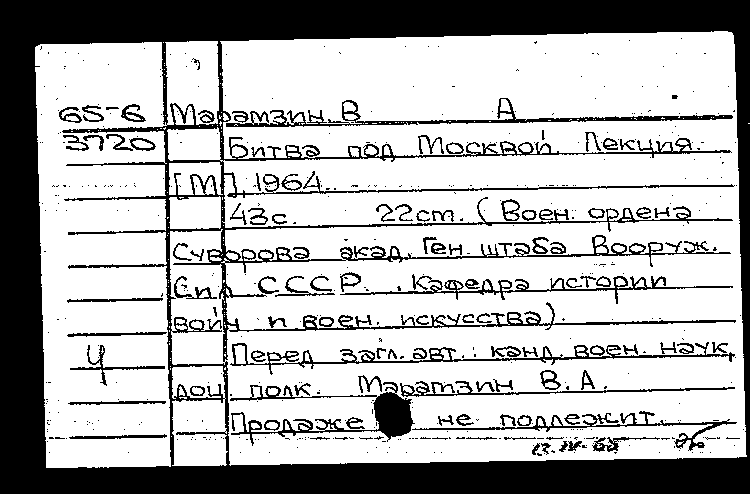 65-6 Марамзин. В А
3720 Битва под Москвой. Лекция.
[М], 1964.
43с. 22см. (Воен. ордена
Суворова акад. Ген. штаба Вооруж.
Сил СССР. Кафедра истории
войн и воен. искусства).
Ч Перед загл. авт.: канд. воен. наук,
доц полк. Марамзин В.А.
Продаже не подлежит.
13-IV-65